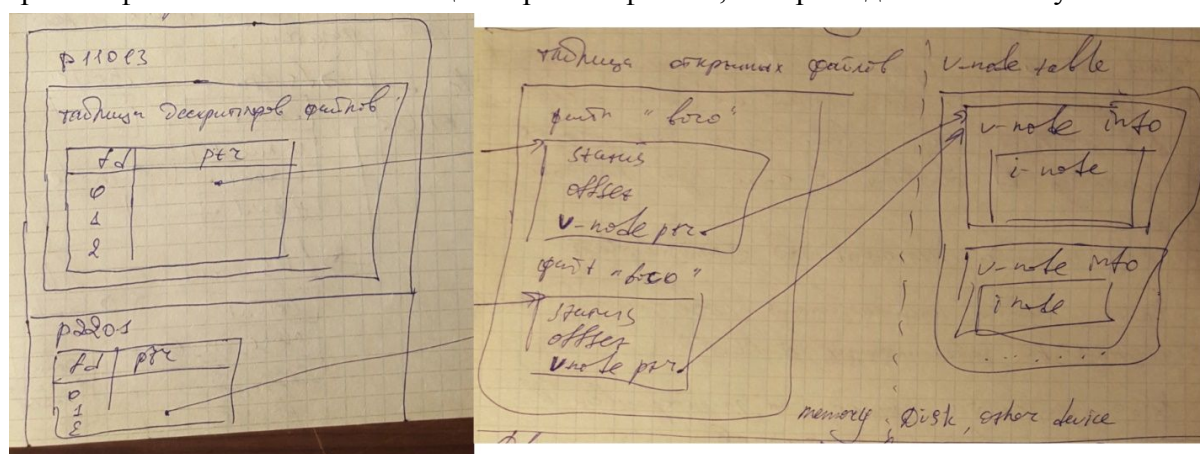 таблица дескрипторов файлов
fd ptr
0
1
2
p2201
fd ptr
0
1
2
таблица открытых файлов
файл
status
offset
v-node ptr
файл
status
offset
v-node ptr
v-node table
v-node info
i-node
v-node info
i node
.......
memory
Disk, other device